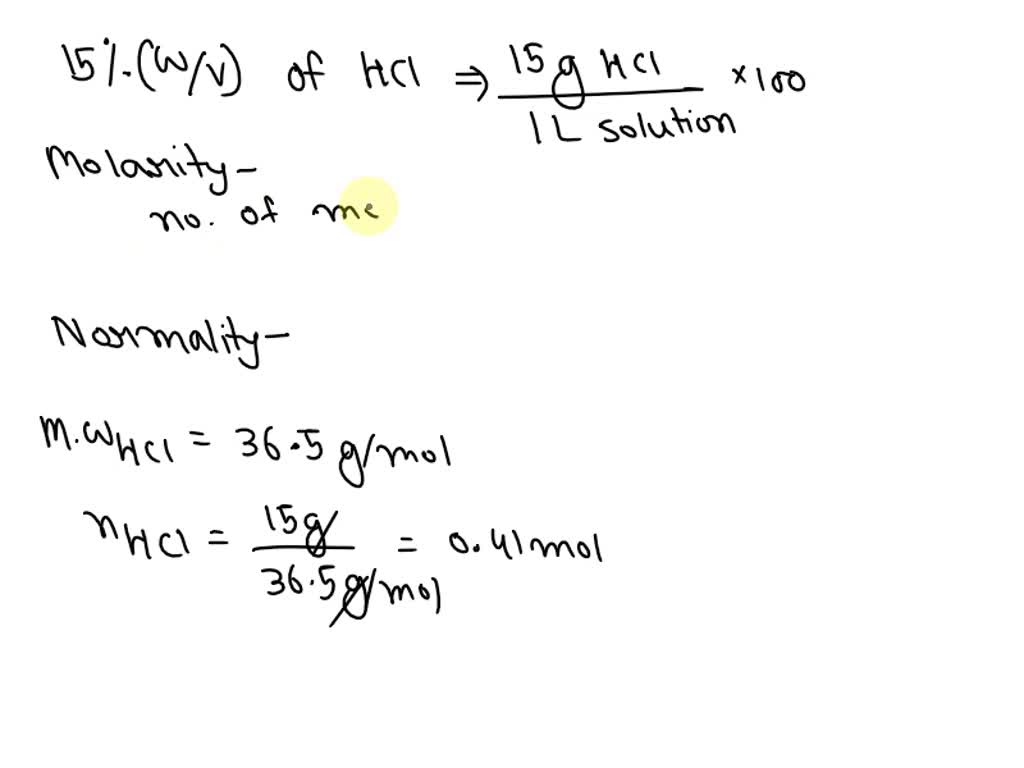 15%.(W/V) of HCl ⇒ 15g HCl / 1L solution × 100
Molarity-
no. of mc
Normality-
M.W HCl = 36.5 g/mol
n HCl = 15g / 36.5g/mol = 0.41mol